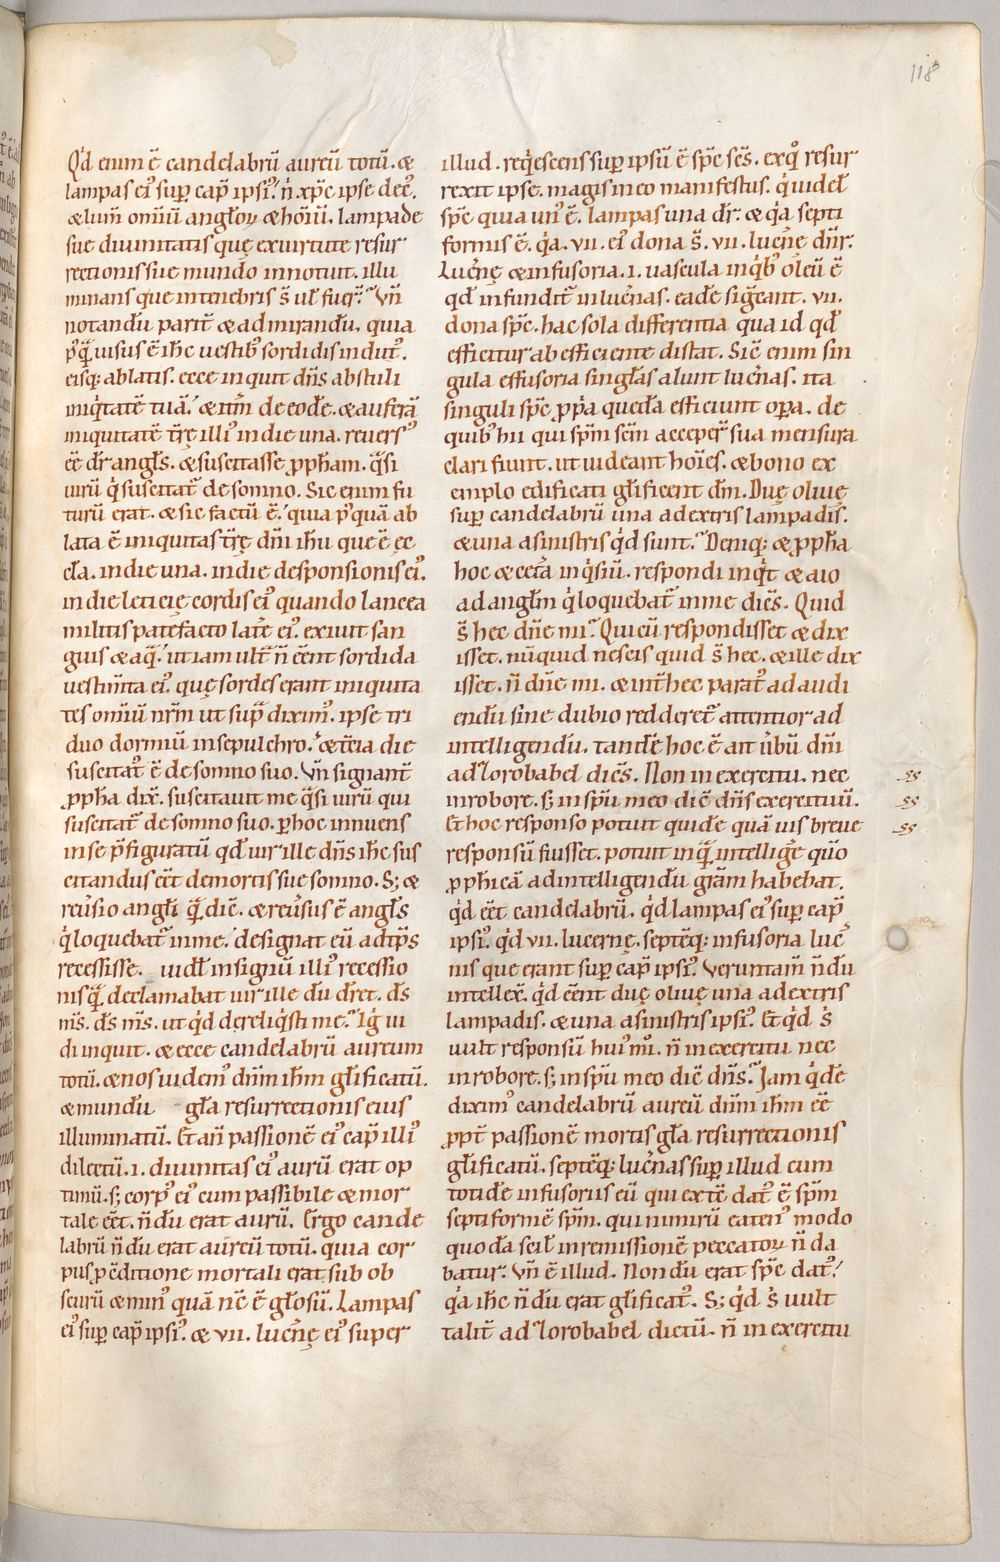 118
Qd̉ enim ē candelabrū aureū totū. &
lampas ei᾽ sup̱ cap̄ ipsi᾽. n̄ xp̄c ipse dec᾽.
& lum̄ omniū angloꝝ & hoīū. lampade
sue diuinitatis quę ex uirtute resur
rectionis sue mundo innotuit. illu
minans que in tenebris s̄ ul̄ fuer̄. Vn̄
notandū parit̄ & admirandū. quia
p᾽q̄ uisus ē ih̄c uestib᾽ sordidis indut᾽.
eisq; ablatis. ecce inquit dn̄s abstuli
iniq̇tatē tuā. & itm̄ de eodē. & auferā
iniquitatē tr̄ę illi᾽ in die una. reuers᾽
eē dr̄ angls̄. & suscitasse ꝓph̄am. q̄si
uirū q̇ suscitat̄ de somno. Sic enim fu
turū erat. & sic factū ē. quia p᾽quā ab
lata ē iniquitas tr̄ę dn̄i ih̄u que ē ec
cla̅. in die una. in die desponsionis ei᾽.
in die leticię cordis ei᾽ quando lancea
militis patefacto latē ei᾽. exiuit san
guis & aq̄. ut iam ult̄ n̄ eēnt sordida
uestim̄ta ei᾽. quę sordes erant iniquita
tes omniū nr̄m ut sup̄ dixim᾽. ipse tri
duo dormiū in sepulchro. & t̄cia die
suscitat᾽ ē de somno suo. Vn̄ signant̄
ꝓpha dix̄. suscitauit me q̄si uirū qui
suscitat̄ de somno suo. ꝑ hoc innuens
in se p̄figuratū qd̄ uir ille dn̄s ih̄c sus
citandus eēt de mortis sue somno. S; &
reu̅sio angli̅ q̄ dic̄. & reu̅sus ē angls̄
q̇ loquebat̄ in me. designat eū ad tp̄s
recessisse. uidl̄ in signū illi᾽ recessio
nis q̄ declamabat uir ille dū dr̄et. ds̄
ms̄. ds̄ ms̄. ut qḋ dereliq̇sti me. Ig̊ ui
di inquit. & ecce candelabrū aureum
totū. & nos uidem᾽ dn̄m ih̄m glificatū.
& mundū gla̅ resurrectionis eius
illuminatū. Et an̄ passionē ei᾽ cap̄ illi᾽
dilectū. i. diuinitas ei᾽ aurū erat op
timū. s; corp᾽ ei᾽ cum passibile & mor
tale eēt. n̄dū erat aurū. Ergo cande
labrū n̄dū erat aureū totū. quia cor
pus ꝓ c̄ditione mortali erat sub ob
scurū & min᾽ quā nc̄ ē glosū. Lampas
ei᾽ sup̱ cap̄ ipsi᾽. & vii. lucn̄ę ei᾽ super
illud. req̇escens sup̱ ipsū ē sp̄c sc̄s. ex q᾽ resur
rexit ipse. magis in eo manifestus. q̇ uidel̄
sp̄c quia un᾽ ē. lampas una dr̄. & q̇a septi
formis ē. q̇a. vii. ei᾽ dona s̄. vii. lucn̄ę dn̄r.
Lucn̄ę & infusoria. i. uascula in q̇b᾽ oleū ē
qd̄ infundit̄ in lucn̄as. eadē sig̅eant. vii.
dona sp̄c. hac sola differentia qua id qd̄
efficitur ab efficiente distat. Sic̄ enim sin
gula effusoria singlas̄ alunt lucn̄as. ita
singuli sp̄c ꝓṗa quedā efficiunt oꝑa. de
quib᾽ hii qui sp̄m scm̄ acceper̄ sua mensura
clari fiunt. ut uideant hoīes. & bono ex
emplo edificati glificent dm̄. Duę oliuę
sup̱ candelabrū una a dextris lampadis.
& una a sinistris qḋ sunt. Deniq; & ꝓpha̅
hoc & cet̄a inq̇siū. respondi inq̇t & aio
ad anglm̄ q̇ loquebat̄ in me dic̄s. Quid
s̄ hec dn̄e mi. Qui cū respondisset & dix
isset. nūquid nescis quid s̄ hec. & ille dix
isset. n̄ dn̄e mi. & int̄ hec parat᾽ ad audi
endū sine dubio redderet̄ attentior ad
intelligendū. tandē hoc ē ait u̅bū dn̄i
ad Zorobabel dic̄s. Non in exercitu. nec
in robore. s; in spū meo dic̄ dn̄s exercituū.
Et hoc responso potuit quidē quā uis breue
responsū fuisset. potuit inq̄ intellige̅ quō
ꝓphicā̅ ad intelligendū gram̄ habebat.
qḋ eēt candelabrū. qḋ lampas ei᾽ sup̱ cap̄
ipsi᾽. qḋ vii. lucerne. septēq; infusoria luc̄
nis que erant sup̱ cap̄ ipsi᾽. Veruntam̄ n̄dū
intellex̄. qḋ eēnt duę oliuę una a dextris
lampadis. & una a sinistris ipsi᾽. Et qḋ s᾽
uult responsū hui᾽m᾽. n̄ in exercitu nec
in robore. s; in spū meo dic̄ dn̄s. Iam q̇dē
dixim᾽ candelabrū aureū dn̄m ih̄m eē
ꝓpt̄ passionē mortis gla̅ resurrectionis
glificatū. septēq; lucn̄as sup̱ illud cum
totidē infusoriis eū qui extē dat᾽ ē spm̄
septiformē spm̄. qui nimirū eaten᾽ modo
quodā scil̄ in remissionē peccatoꝝ n̄ da
batur. Vn̄ ē illud. Non dū erat sp̄c dat᾽.
q̇a ih̄c n̄dū erat glificat᾽. S; qḋ s᾽ uult
talit̄ ad Zorobabel dictū. n̄ in exercitu
ss
ss
ss